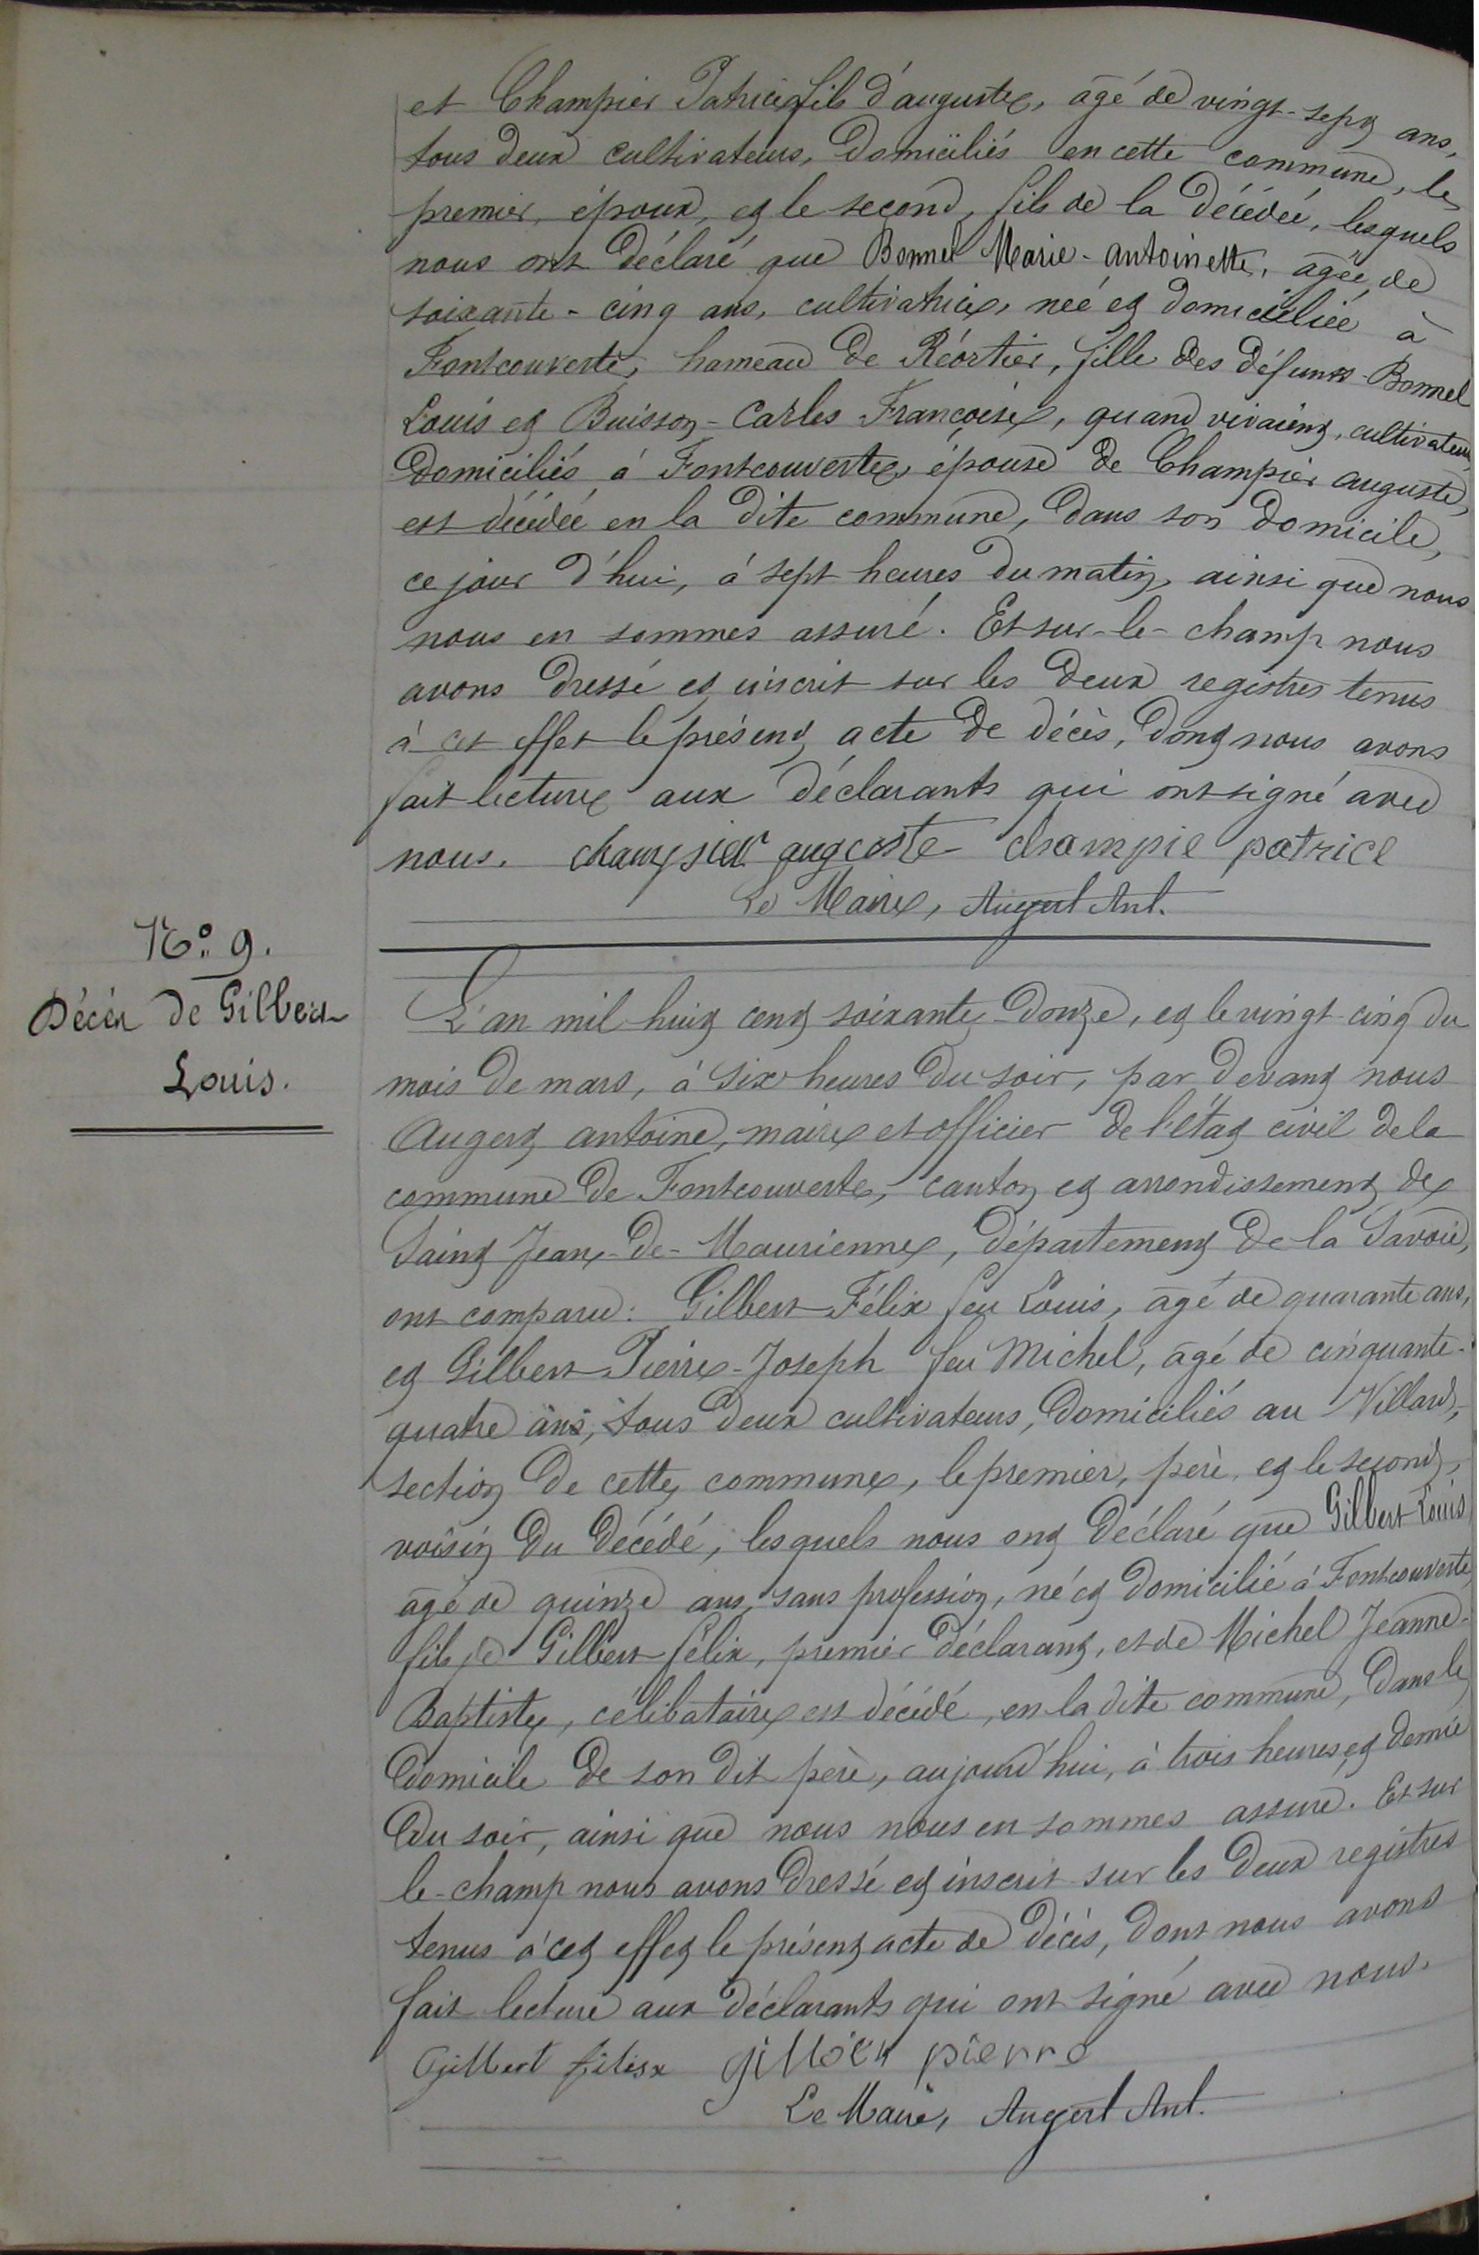 et Champier Patrice fils d'auguste, âgé de vingt-sept ans,
tous deux cultivateurs, domiciliés en cette commune, le
premier, époux, et le second, fils de la décédée, lesquels
nous ont déclaré que Bonnel Marie-antoinette, âgée de
soixante-cinq ans, cultivatrice, née et domiciliée à
Fontcouverte, hameau de Réortier, fille des défunts Bonnel
Louis et Buisson-Carles Françoise, quand vivaient, cultivateurs
domiciliés à Fontcouverte, épouse de Champier auguste,
est décédée en la dite commune, dans son domicile,
ce jour d'hui, à sept heures du matin, ainsi que nous
nous en sommes assuré. Et sur-le-champ nous
avons dressé et inscrit sur les deux registres tenus
à cet effet le présent acte de décès, dont nous avons
fait lecture aux déclarants qui ont signé avec
nous. champier augoste champie patrice
Le Maire, Augert Ant.
N° 9.
Décès de Gilbert
Louis.
L'an mil huit cent soixante-douze, et le vingt-cinq du
mois de mars, à six heures du soir, par devant nous
Augert antoine, maire et officier de l'état civil de la
commune de Fontcouverte, canton et arrondissement de
Saint Jean-de-Maurienne, département de la Savoie,
ont comparu: Gilbert Félix feu Louis, âgé de quarante ans,
et Gilbert Pierre-Joseph feu Michel, âgé de cinquante-
quatre ans, tous deux cultivateurs, domiciliés au Villard,
section de cette commune, le premier, père, et le second,
voisin du décédé, lesquels nous ont déclaré que Gilbert Louis
âgé de quinze ans, sans profession, né et domicilié à Fontcouverte
fils de Gilbert félix, premier déclarant, et de Michel Jeanne-
Baptiste, célibataire est décédé, en la dite commune, dans le
domicile de son dit père, aujourd'hui, à trois heures et demie
du soir, ainsi que nous nous en sommes assuré. Et sur
le-champ nous avons dressé et inscrit sur les deux registres
tenus à cet effet le présent acte de décès, dont nous avons
fait lecture aux déclarants qui ont signé avec nous.
Gilbert félix gilbert pierre
Le Maire, Augert Ant.